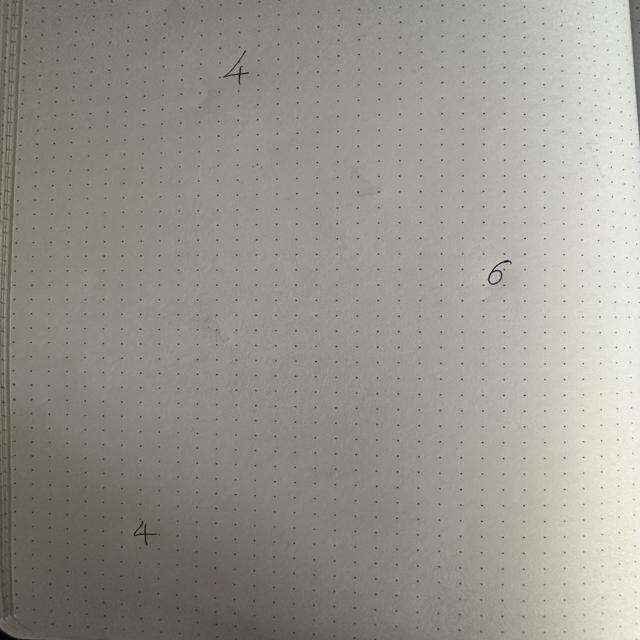 4
6
4